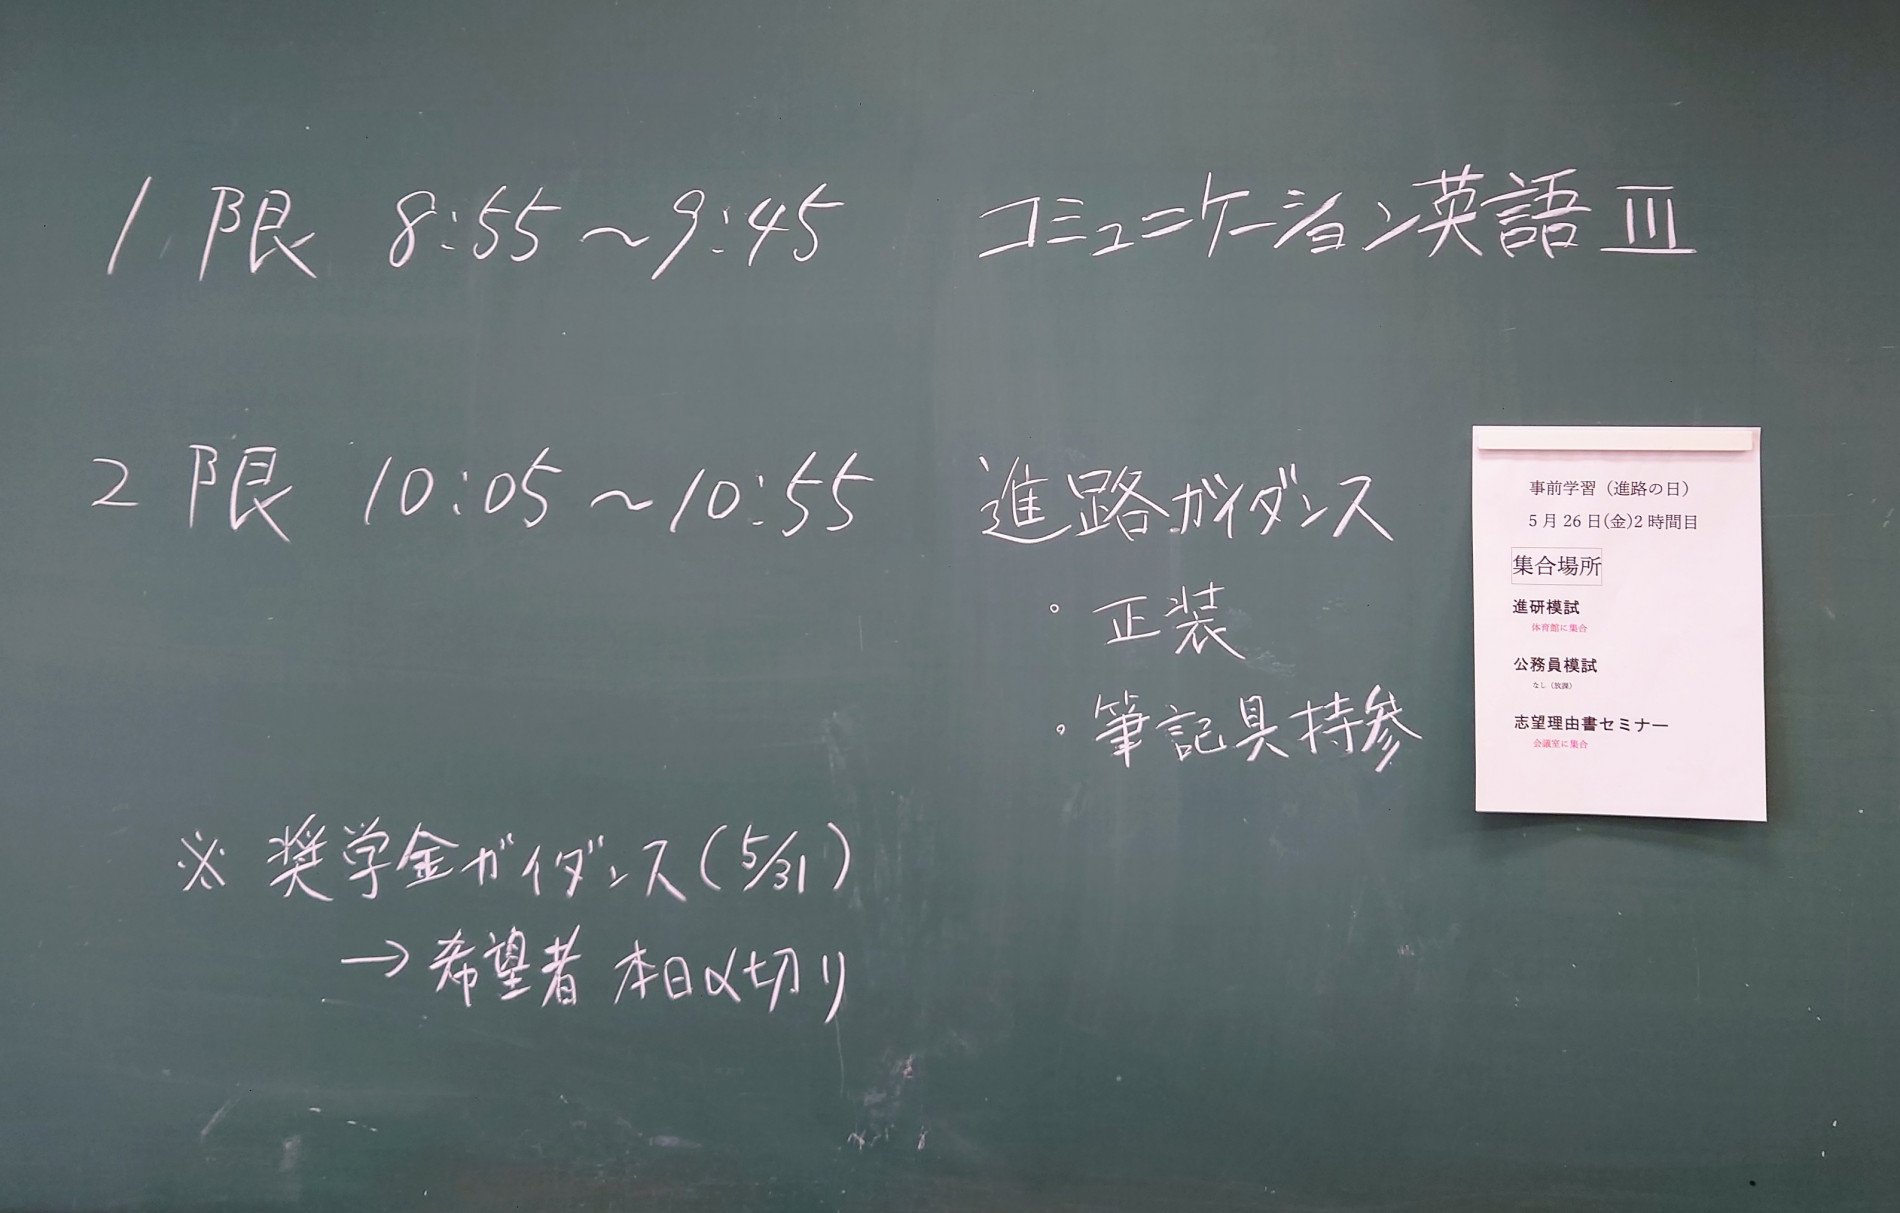 1限 8:55〜9:45 コミュニケーション英語Ⅲ
2限 10:05〜10:55 進路ガイダンス
・正装
・筆記具持参
※奨学金ガイダンス(5/31)
→希望者 本日〆切り
事前学習（進路の日）
5月26日(金)2時間目
集合場所
進研模試
体育館に集合
公務員模試
なし（放課）
志望理由書セミナー
会議室に集合